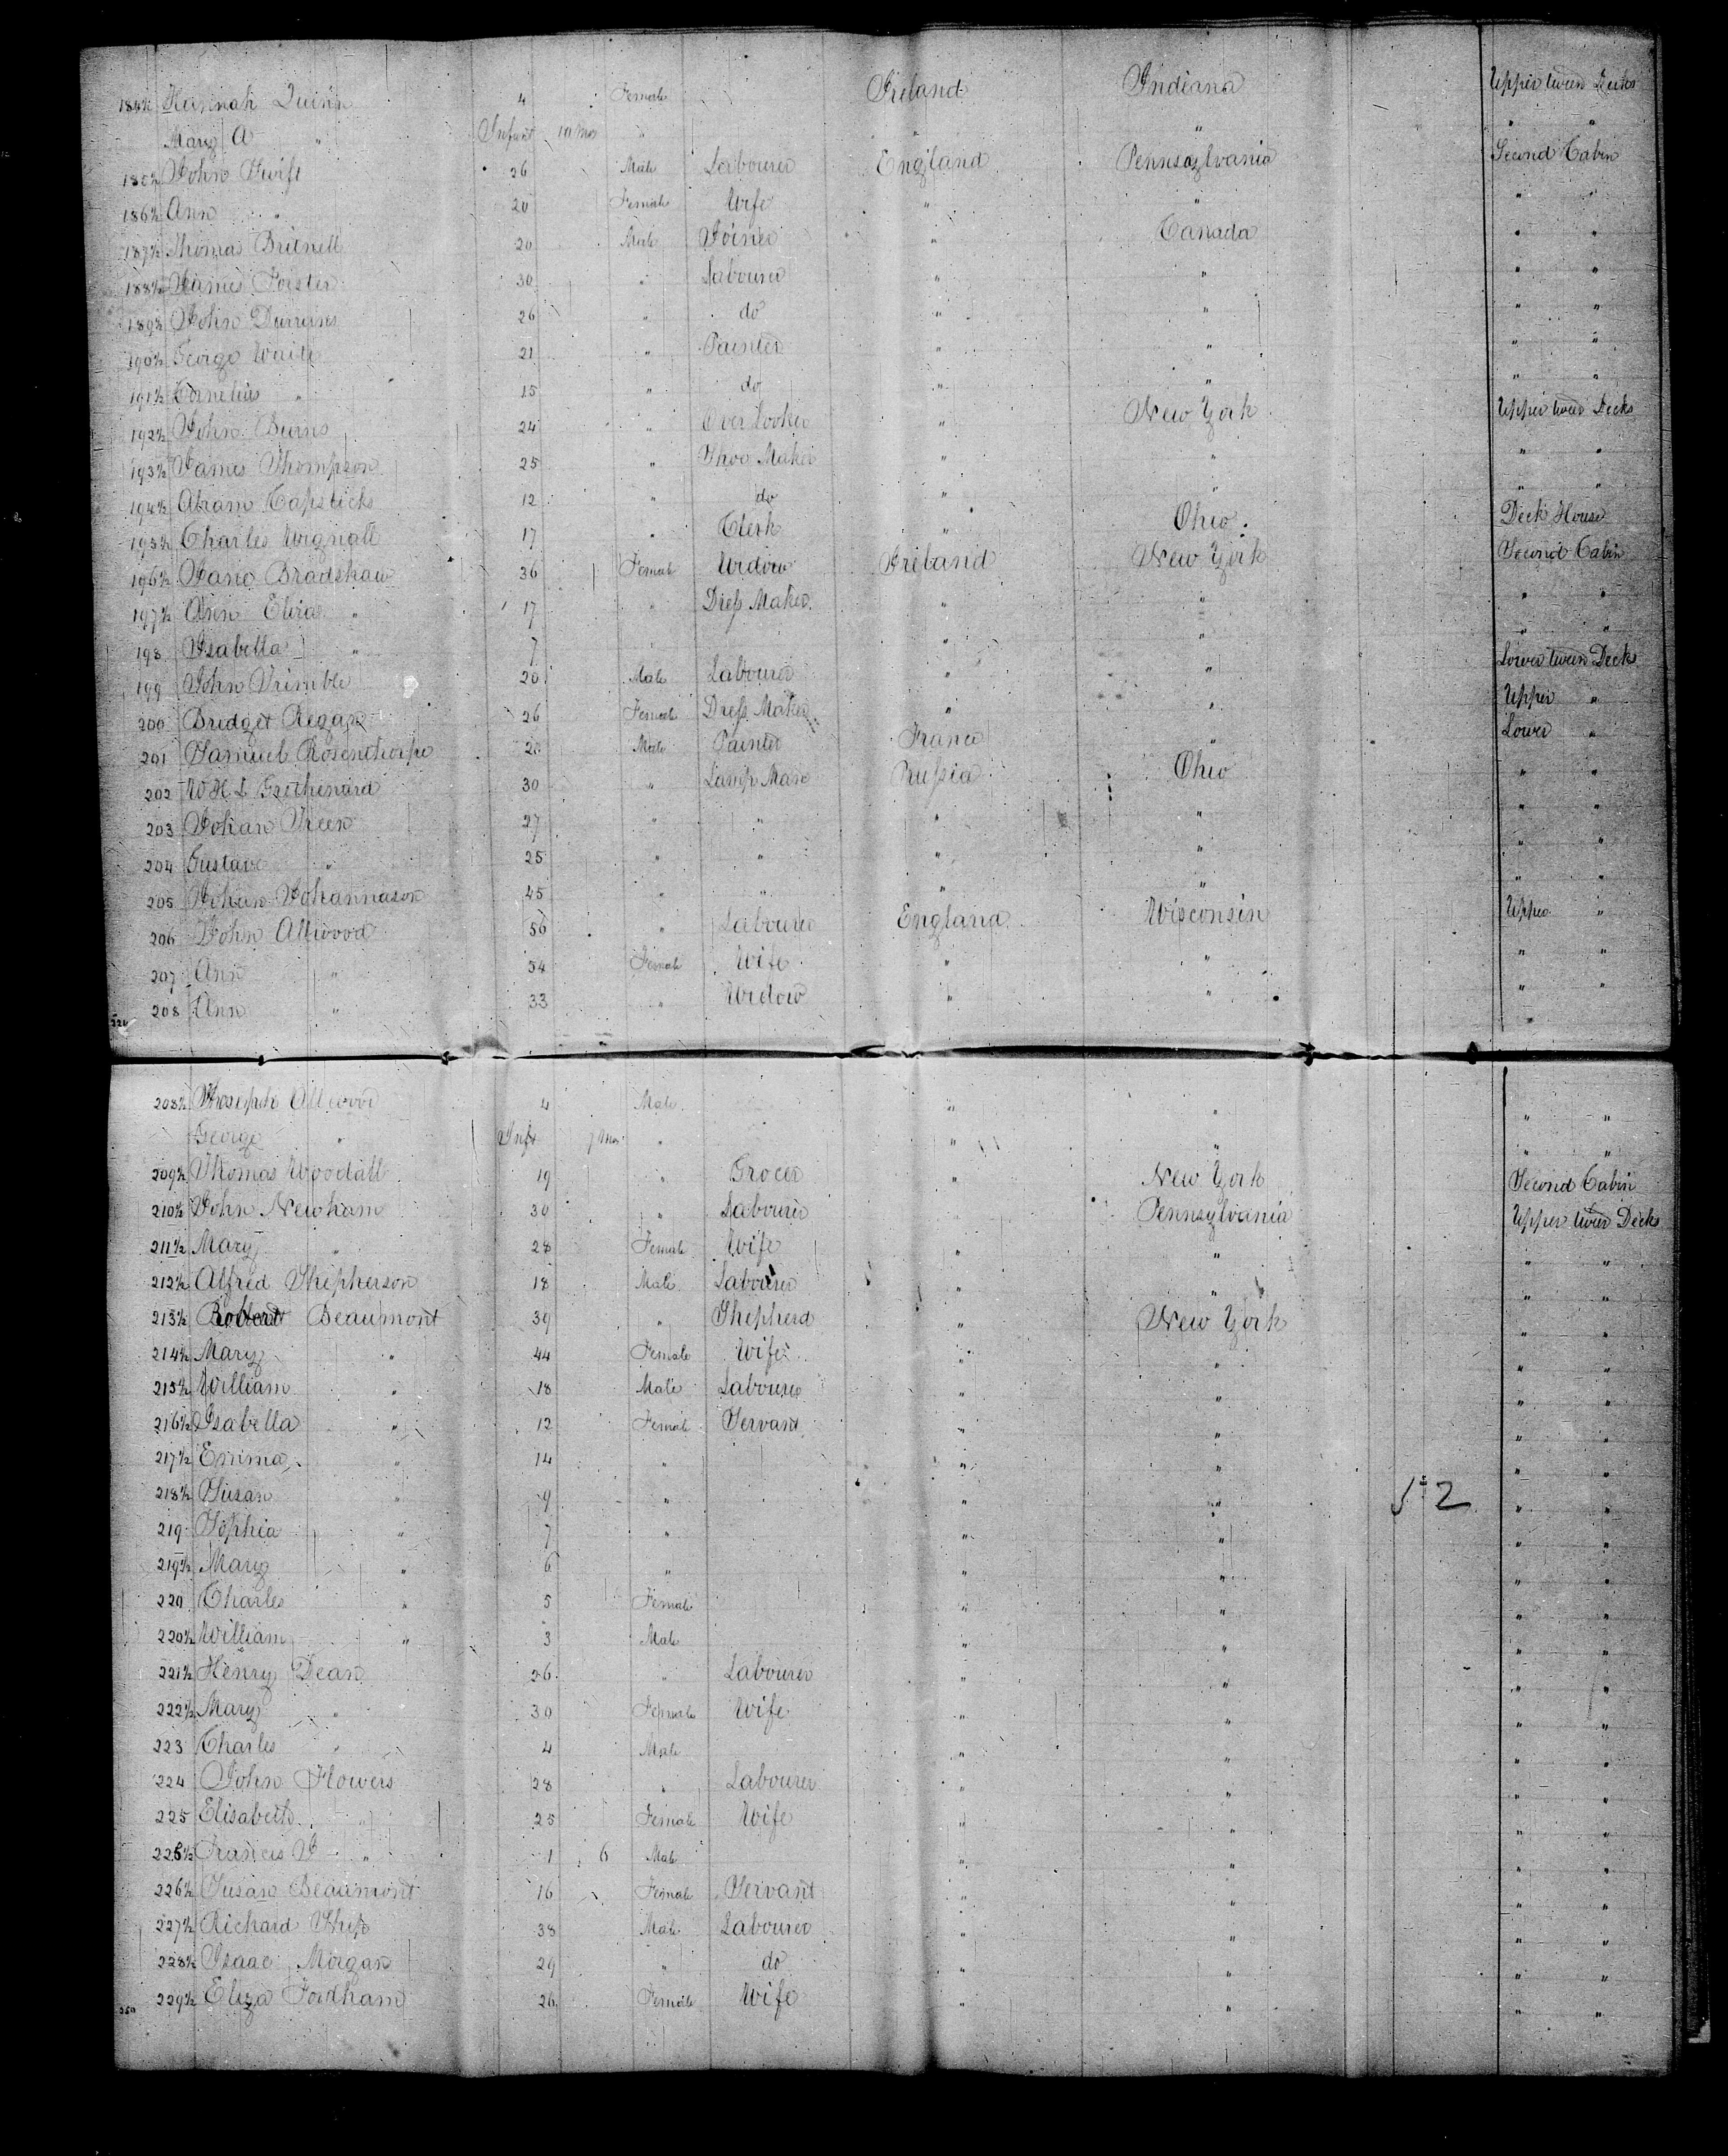 184½ Hannah Quinn 4 Female Ireland Indiana Upper tween Decks
Mary A " Infant 10 Mos " " " " "
185½ John Swift 26 Male Labourer England Pennsylvania Second Cabin
186½ Ann " 20 Female Wife " " " "
187½ Thomas Britnell 20 Male Joiner " Canada " "
188½ James Forster 30 " Labourer " " " "
189½ John 26 " do " " " "
190½ George Waite 21 " Painter " " " "
191½ Cornelius " 15 " do " " " "
192½ John Burns 24 " Over Looker " New York Upper tween Decks
193½ James Thompson 25 " Shoe Maker " " " "
194½ Abram Capstick 12 " do " " " "
195½ Charles Wignall 17 " Clerk " Ohio Deck House
196½ Jane Bradshaw 36 Female Widow Ireland New York Second Cabin
197½ Ann Eliza " 17 " Dress Maker " " " "
198 Isabella " 7 " " " " "
199 John Trimble 20 Male Labourer " " Lower tween Decks
200 Bridget Regan 26 Female Dress Maker " " Upper "
201 Samuel Rosenthorpe 20 Male Painter France " Lower "
202 W H L 30 " Lamp Man Russia Ohio " "
203 Johan Theen 27 " " " " " "
204 Gustave " 25 " " " " " "
205 Johan Johannason 45 " " " " " "
206 John Allwood 56 " Labourer England Wisconsin Upper "
207 Ann " 54 Female Wife " " " "
208 Ann " 33 " Widow " " " "
208½ Joseph Allwood 4 Male " " " "
George " Inft 7 Mos " " " " "
209½ Thomas Woodall 19 " Grocer " New York Second Cabin
210½ John Newham 30 " Labourer " Pennsylvania Upper tween Decks
211½ Mary " 28 Female Wife " " " "
212½ Alfred Shepherson 18 Male Labourer " " " "
213½ Robert Beaumont 39 " Shepherd " New York " "
214½ Mary " 44 Female Wife " " " "
215½ William " 18 Male Labourer " " " "
216½ Isabella " 12 Female Servant " " " "
217½ Emma " 14 " " " " "
218½ Susan " 9 " " " 52 " "
219 Sophia " 7 " " " " "
219½ Mary " 6 " " " " "
220 Charles " 5 Female " " " "
220½ William " 3 Male " " " "
221½ Henry Dean 26 " Labourer " " " "
222½ Mary " 30 Female Wife " " " "
223 Charles " 4 Male " " " "
224 John Flowers 28 " Labourer " " " "
225 Elisabeth " 25 Female Wife " " " "
225½ Francis J " 1 6 Male " " " "
226½ Susan Beaumont 16 Female Servant " " " "
227½ Richard 38 Male Labourer " " " "
228½ Isaac Morgan 29 " do " " " "
229½ Eliza Fordham 26 Female Wife " " " "
250